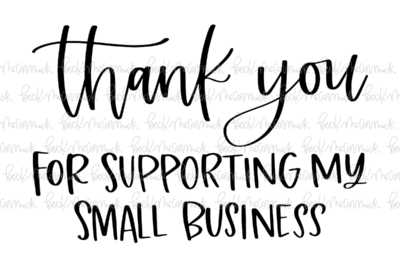 thank you
FOR SUPPORTING MY
SMALL BUSINESS